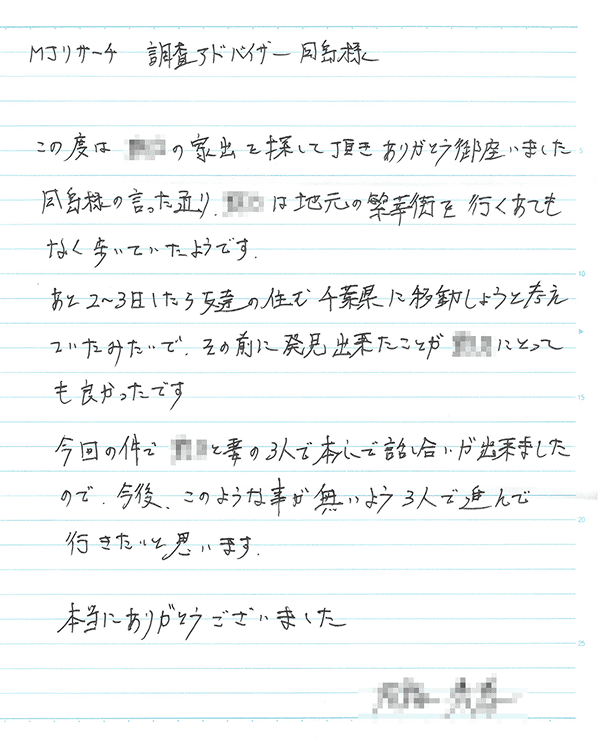 MJリサーチ 調査アドバイザー 島様
この度は の家出を探して頂きありがとう御座いました
5
島様の言った通り、 は地元の繁華街を行くあても
なく歩いていたようです.
10
あと2〜3日したら友達の住む千葉県に移動しようと考え
ていたみたいで、その前に発見出来たことが にとって
も良かったです
15
今回の件で と妻の3人で本心で話し合いが出来ました
ので、今後、このような事が無いよう3人で進んで
20
行きたいと思います.
本当にありがとうございました
25